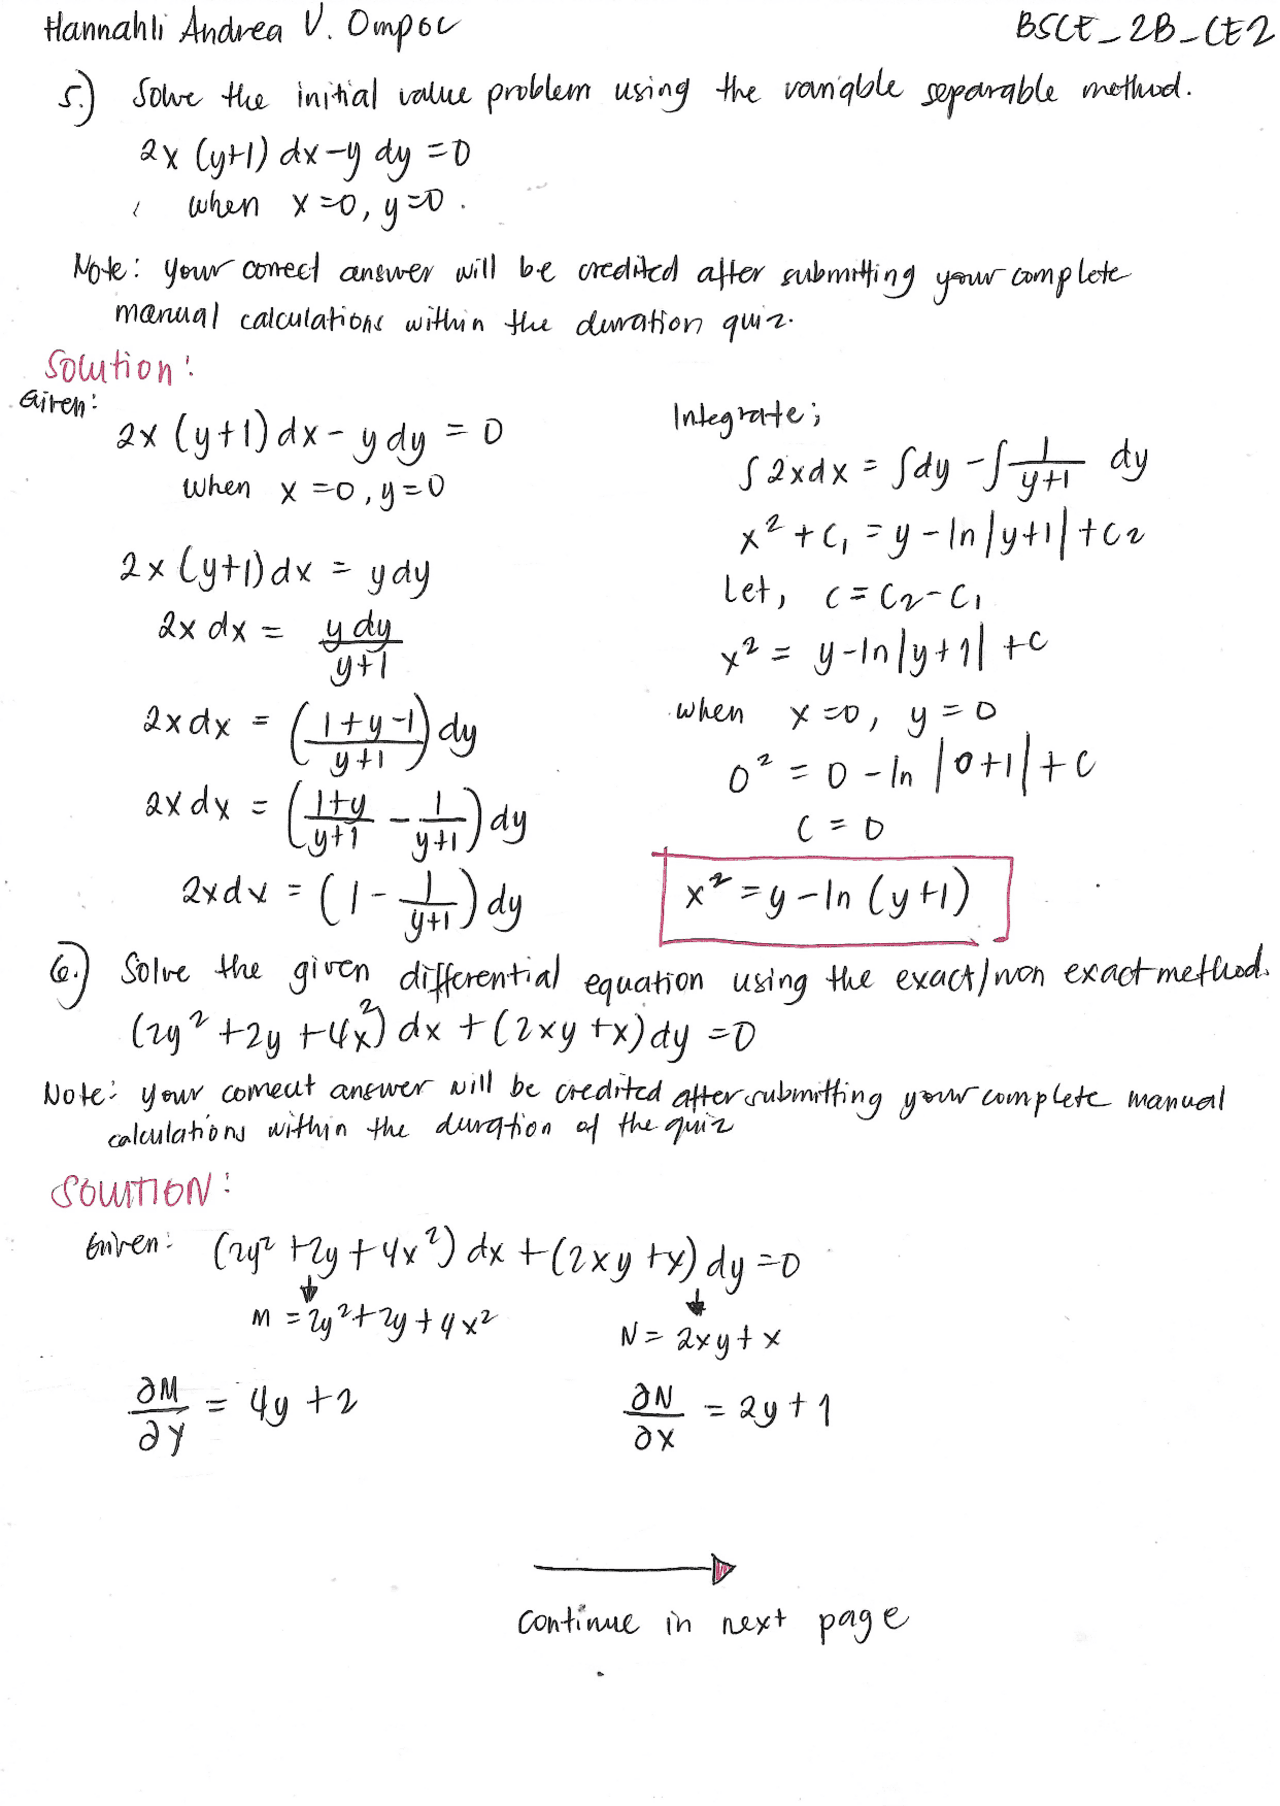 Hannahli Andrea V. Ompoc BSCE_2B_CE2
5.) Solve the initial value problem using the variable separable method.
2x (y+1) dx - y dy = 0
when x=0, y=0.
Note: your correct answer will be credited after submitting your complete
manual calculations within the duration quiz.
Solution:
Given:
2x (y+1) dx - y dy = 0
when x=0, y=0
2x (y+1) dx = y dy
2x dx = y dy / y+1
2x dx = (1+y-1 / y+1) dy
2x dx = (1+y / y+1 - 1 / y+1) dy
2x dx = (1 - 1 / y+1) dy
Integrate;
∫ 2x dx = ∫ dy - ∫ 1 / y+1 dy
x² + C₁ = y - ln |y+1| + C₂
Let, C = C₂ - C₁
x² = y - ln |y+1| + C
when x=0, y=0
0² = 0 - ln |0+1| + C
C = 0
x² = y - ln (y+1)
6.) Solve the given differential equation using the exact/non exact method.
(2y² + 2y + 4x²) dx + (2xy + x) dy = 0
Note: your correct answer will be credited after submitting your complete manual
calculations within the duration of the quiz
SOLUTION:
Given: (2y² + 2y + 4x²) dx + (2xy + x) dy = 0
M = 2y² + 2y + 4x² N = 2xy + x
∂M / ∂y = 4y + 2 ∂N / ∂x = 2y + 1
continue in next page